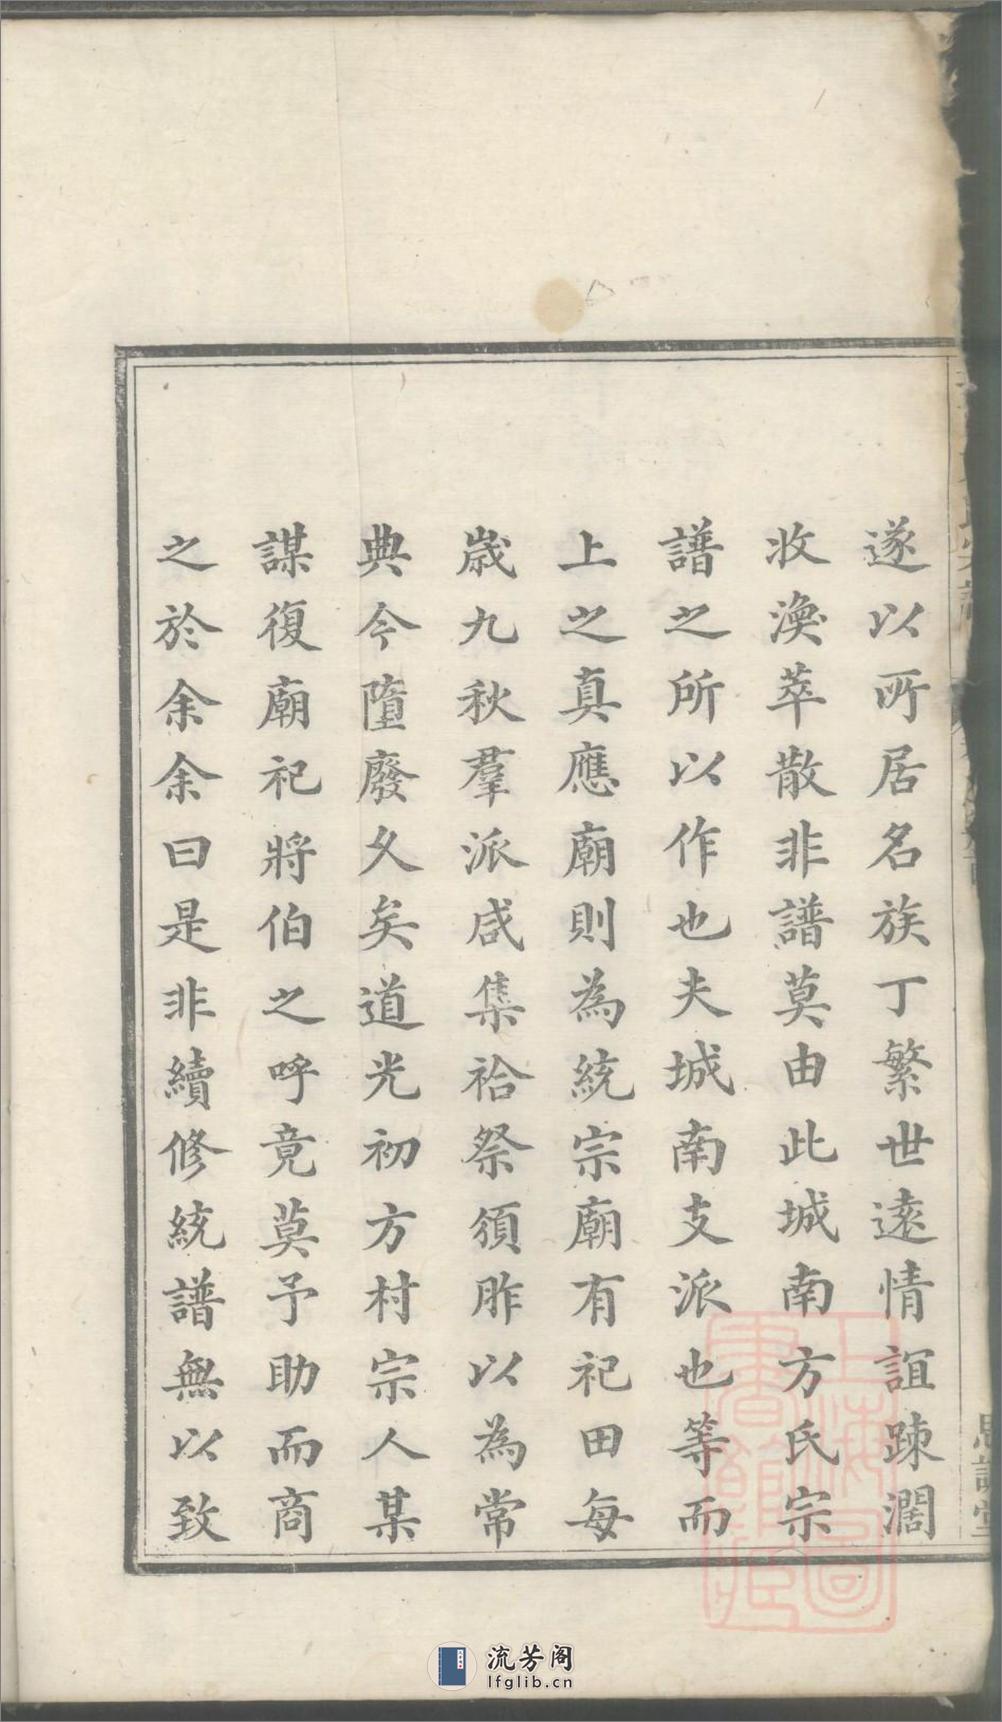 遂以所居名族丁繁世遠情誼踈濶
收渙萃散非譜莫由此城南方氏宗
譜之所以作也夫城南支派也等而
上之真應廟則為統宗廟有祀田每
歲九秋羣派咸集祫祭須胙以為常
典今隳廢久矣道光初方村宗人某
謀復廟祀將伯之呼竟莫予助而商
之於余余曰是非續修統譜無以致
上海圖書館藏
流芳阁
lfglib.cn